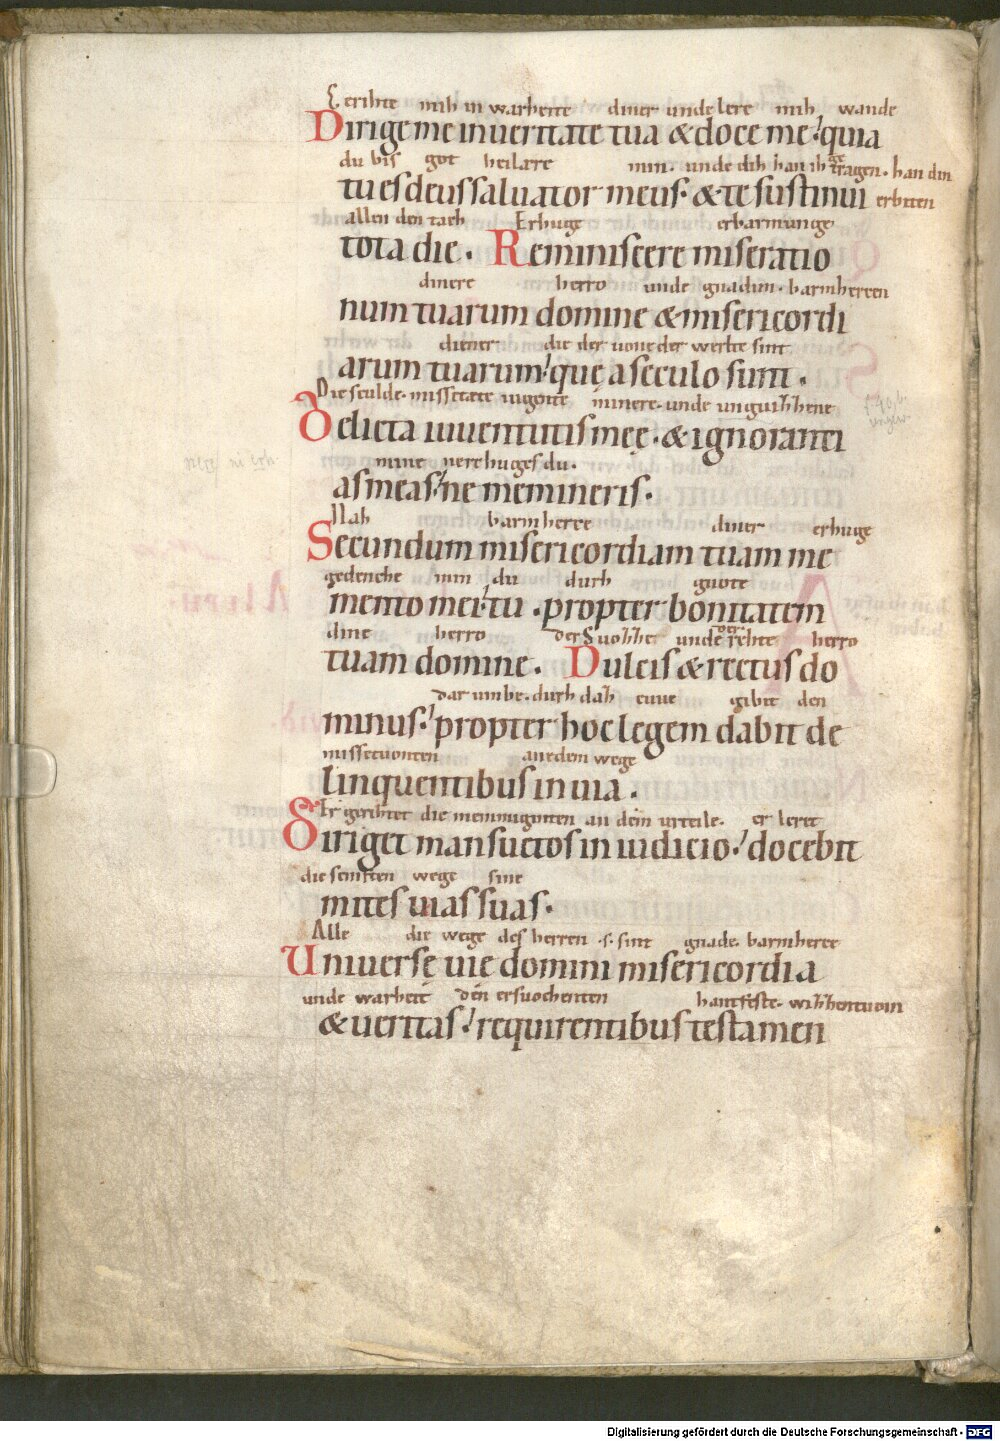 Gerihte mih in warheite diner unde lere mih wande
Dirige me in veritate tua & doce me quia
du bis got heilare min. unde dih han ih getragen. han din
tu es deus saluator meus. & te sustinui erbiten
allen den tach Erhuge erbarmunge
tota die. Reminiscere miseratio
dinere herro unde gnadun. barmherten
num tuarum domine & misericordi
diener die der uone der werlte sint
arum tuarum que a seculo sunt.
Die sculde. missetate iugente minere. unde unguihhene
Delicta iuuentutis meę. & ignoranti
mine nerehuges du.
as meas ne memineris.
Nah barmherce diner erhuge
Secundum misericordiam tuam me
gedenche min du durh guote
mento mei tu. propter bonitatem
dine herro der Suohhe unde der rehte herro
tuam domine. Dulcis & rectus do
dar umbe. durh dah euue gibit den
minus propter hoc legem dabit de
missetuonten an dem wege
linquentibus in uia.
Er gerihtet die menmugotten an dem urteile. er leret
Diriget mansuetos in iudicio docebit
die senften wege sine
mites uias suas.
Alle die wege des herren .s. sint gnade. barmherce
Uniuersę uie domini misericordia
unde warheit den ersuochenten hantfeste.
& ueritas requirentibus testamen
Digitalisierung gefördert durch die Deutsche Forschungsgemeinschaft - DFG